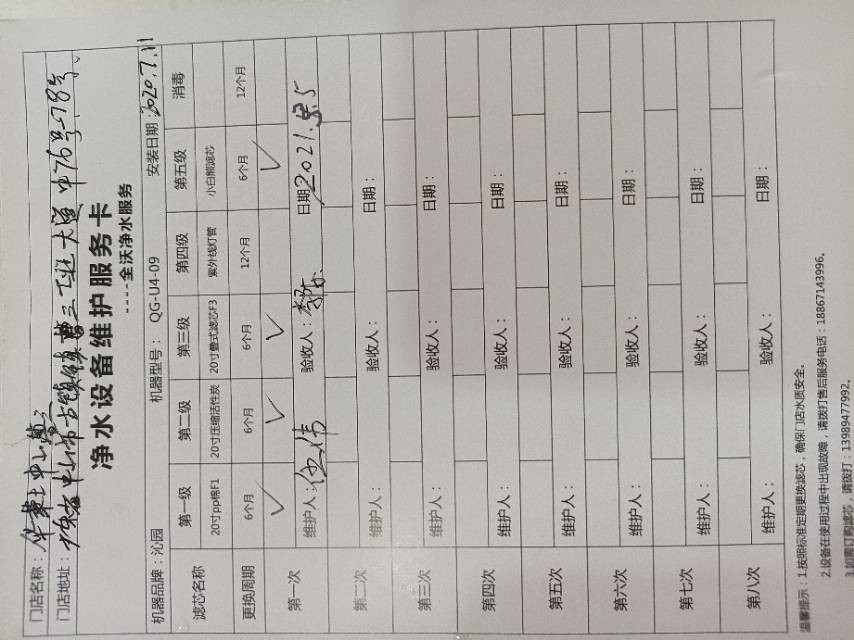 门店名称：
门店地址：
净水设备维护服务卡
----全沃净水服务
机器品牌：沁园 机器型号： QG-U4-09 安装日期：2020.7.11
滤芯名称 第一级 第二级 第三级 第四级 第五级 消毒
20寸pp棉F1 20寸压缩活性炭 20寸叠式滤芯F3 紫外线灯管 小白熊滤芯
更换周期 6个月 6个月 6个月 12个月 6个月 12个月
第一次 ✓ ✓ ✓ ✓
维护人：伍伟 验收人： 日期：2021.
第二次
维护人： 验收人： 日期：
第三次
维护人： 验收人： 日期：
第四次
维护人： 验收人： 日期：
第五次
维护人： 验收人： 日期：
第六次
维护人： 验收人： 日期：
第七次
维护人： 验收人： 日期：
第八次
维护人： 验收人： 日期：
温馨提示：1.按照标准定期更换滤芯，确保门店水质安全。
2.设备在使用过程中出现故障，请拨打售后服务电话：18867143996。
3.如需订购滤芯，请拨打：13989477992。